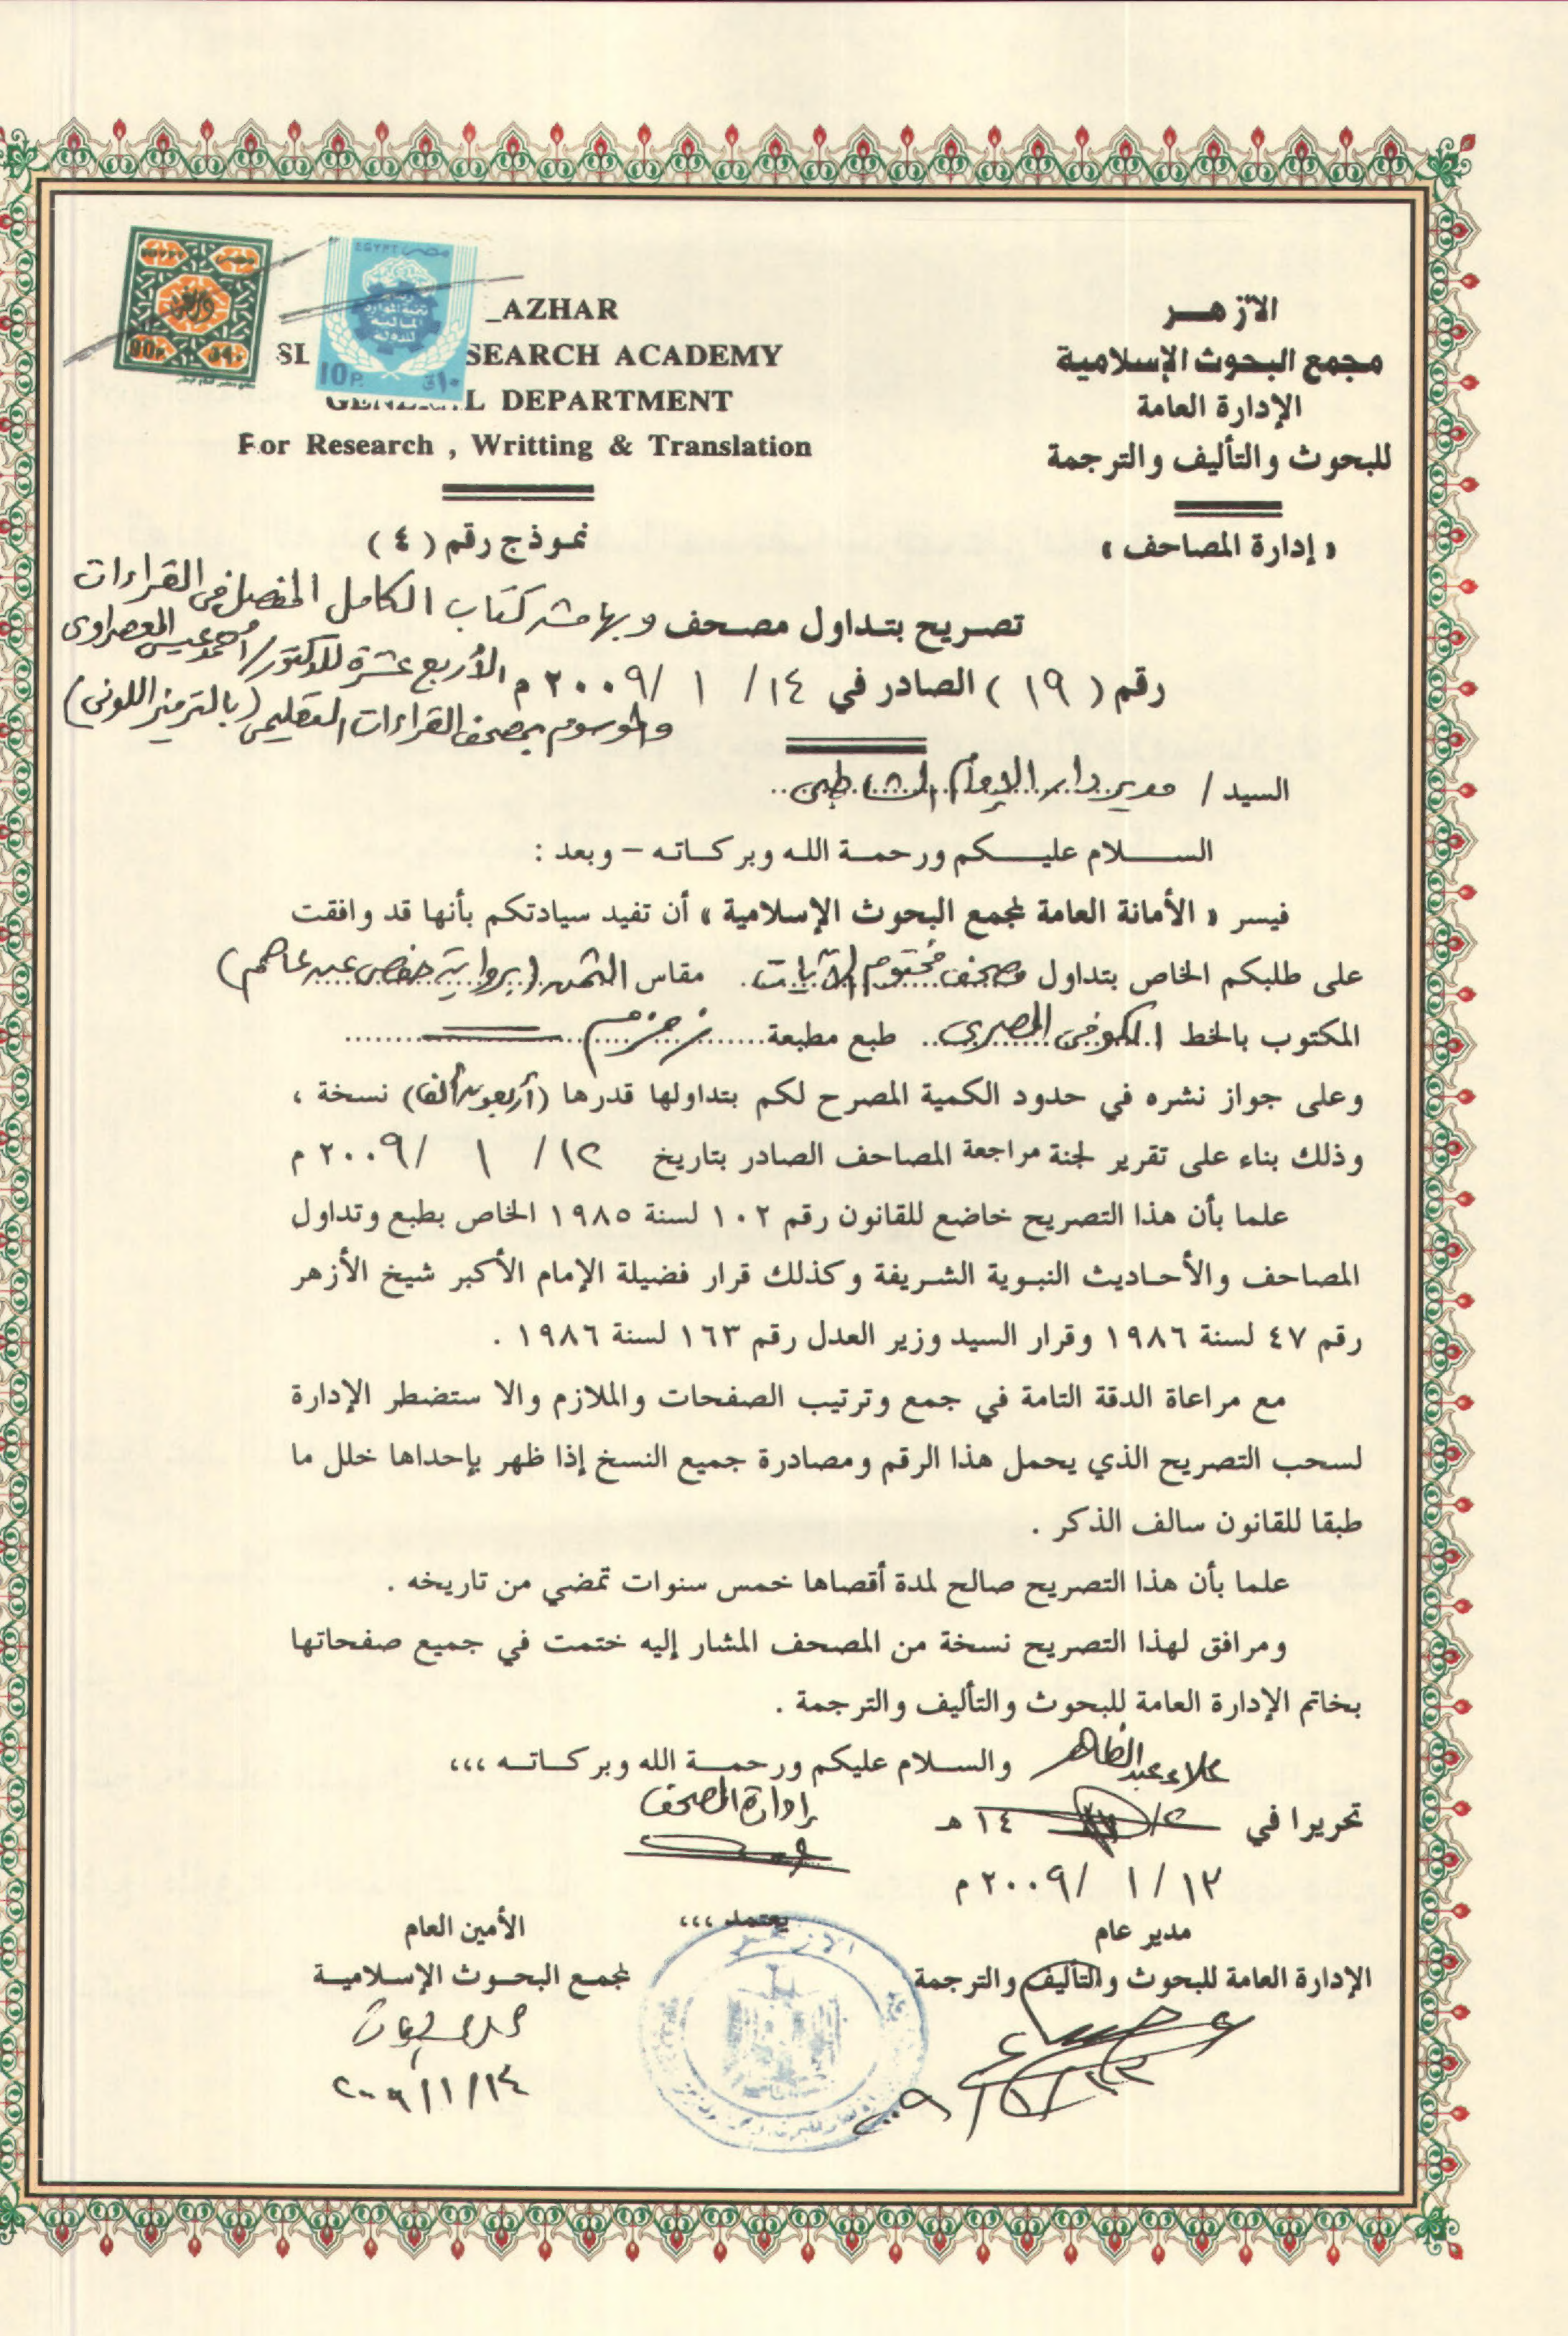 الأزهر
مجمع البحوث الإسلامية
الإدارة العامة
للبحوث والتأليف والترجمة
« إدارة المصاحف »
EGYPT مصر
تنمية الموارد
المالية
للدولة
10P.
90P
_AZHAR
SL SEARCH ACADEMY
GENERAL DEPARTMENT
For Research , Writting & Translation
نموذج رقم ( ٤ )
تصريح بتداول مصحف وبهامشه كتاب الكامل المفصل في القراءات
الأربع عشرة للدكتور/ أحمد عيسى المعصراوى
رقم ( ١٩ ) الصادر في ١٤ / ١ / ٢٠٠٩ م
والموسوم بمصحف القراءات التعليمى (بالترميز اللونى)
السيد / مدير دار الإمام الشاطبى
السلام عليكم ورحمة الله وبركاته – وبعد :
فيسر « الأمانة العامة لمجمع البحوث الإسلامية » أن تفيد سيادتكم بأنها قد وافقت
على طلبكم الخاص بتداول مصحف مختوم الآيات مقاس الثمن (برواية حفص عن عاصم)
المكتوب بالخط الكوفى المصرى طبع مطبعة زمزم
وعلى جواز نشره في حدود الكمية المصرح لكم بتداولها قدرها (أربعون ألفا) نسخة ،
وذلك بناء على تقرير لجنة مراجعة المصاحف الصادر بتاريخ ١٢ / ١ / ٢٠٠٩ م
علما بأن هذا التصريح خاضع للقانون رقم ١٠٢ لسنة ١٩٨٥ الخاص بطبع وتداول
المصاحف والأحاديث النبوية الشريفة وكذلك قرار فضيلة الإمام الأكبر شيخ الأزهر
رقم ٤٧ لسنة ١٩٨٦ وقرار السيد وزير العدل رقم ١٦٣ لسنة ١٩٨٦ .
مع مراعاة الدقة التامة في جمع وترتيب الصفحات والملازم والا ستضطر الإدارة
لسحب التصريح الذي يحمل هذا الرقم ومصادرة جميع النسخ إذا ظهر بإحداها خلل ما
طبقا للقانون سالف الذكر .
علما بأن هذا التصريح صالح لمدة أقصاها خمس سنوات تمضي من تاريخه .
ومرافق لهذا التصريح نسخة من المصحف المشار إليه ختمت في جميع صفحاتها
بخاتم الإدارة العامة للبحوث والتأليف والترجمة .
والسلام عليكم ورحمة الله وبركاته ،،،
علاء عبد الظاهر
إدارة المصحف
تحريرا في / ١٤ هـ
١٣ / ١ / ٢٠٠٩ م
يعتمد ،،،
مدير عام
الإدارة العامة للبحوث والتأليف والترجمة
الأمين العام
لمجمع البحوث الإسلامية
٢٠٠٩/١/١٤
الأزهر